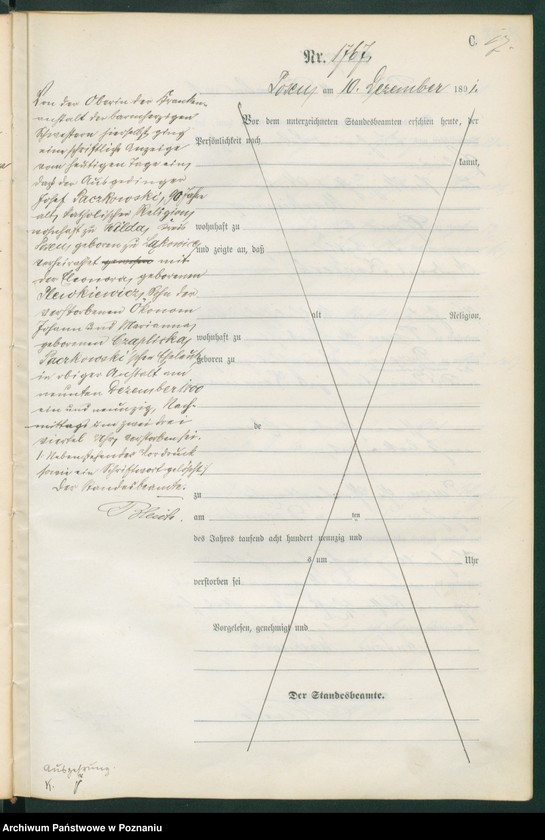 C.
Nr. 1767.
Posen am 10. Dezember 1891.
Von der Oberin der Kranken-
anstalt der barmherzigen
Schwestern hierselbst ging
eine schriftliche Anzeige
vom heutigen Tage ein,
daß der Ausgedinger
Josef Paczkowski, 90 Jahre
alt, katholischer Religion,
wohnhaft zu Wilda, Kreis
Posen, geboren zu
verheirathet mit
der Eleonora, geborenen
Sohn der
verstorbenen Ökonom
Johann und Marianna,
geborenen Czaplicka,
Paczkowski'schen Eheleute
in obiger Anstalt am
neunten Dezember 1800
ein und neunzig, Nach-
mittags um zwei drei
viertel Uhr, verstorben sei.
Nebenstehender Vordruck
sowie ein Schriftwort gelöscht.
Der Standesbeamte.
Vor dem unterzeichneten Standesbeamten erschien heute, der
Persönlichkeit nach
kannt,
wohnhaft zu
und zeigte an, daß
alt Religion,
wohnhaft zu
geboren zu
de
zu
am ten
des Jahres tausend acht hundert neunzig und
s um Uhr
verstorben sei
Vorgelesen, genehmigt und
Der Standesbeamte.
K.
Archiwum Państwowe w Poznaniu